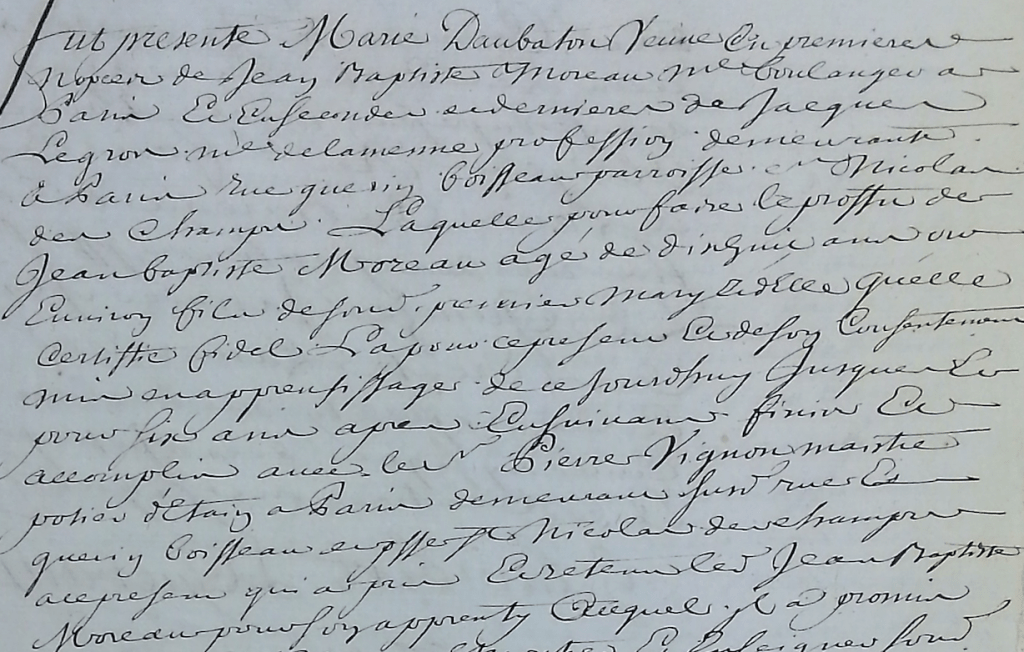 fut presente Marie Daubaton Veuve En premieres
Nopces de Jean Baptiste Moreau me boulanger a
Paris Et En secondes et dernieres de Jacques
Legros me de la mesme profession demeurante
a Paris rue guerin boisseau parroisse St Nicolas
des champs. Laquelle pour faire le proffit de
Jean baptiste Moreau agé de dix huit ans ou
Environ fils de sond. premier mary Et d'Elle quelle
certiffie fidel La pour ce present Et de son Consentement
mis en apprentissage de ce Jourdhuy Jusques Et
pour six ans apres Ensuivans finis Et
accomplis avec le Sr Pierre Vignon maistre
potier d'Etain a Paris demeurant susd. rue
guerin boisseau en psse St Nicolas des champs
a ce present qui a pris Et retenu led Jean Baptiste
Moreau pour son apprenty Auquel il a promis
Et Enseigner sond